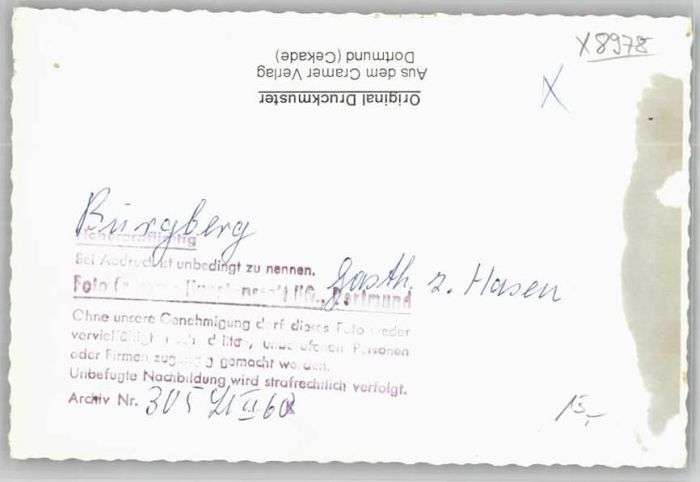 X8978
Original Druckmuster
Aus dem Cramer Verlag
Dortmund (Cekade)
X
Burgberg
Bei Abdruck ist unbedingt zu nennen.
Gasth. z. Hasen
Foto Dortmund
Ohne unsere Genehmigung darf dieses Foto weder
vervielfältigt noch dritten, unberufenen Personen
oder Firmen zugängig gemacht werden.
Unbefugte Nachbildung wird strafrechtlich verfolgt.
Archiv Nr. 305
15,-